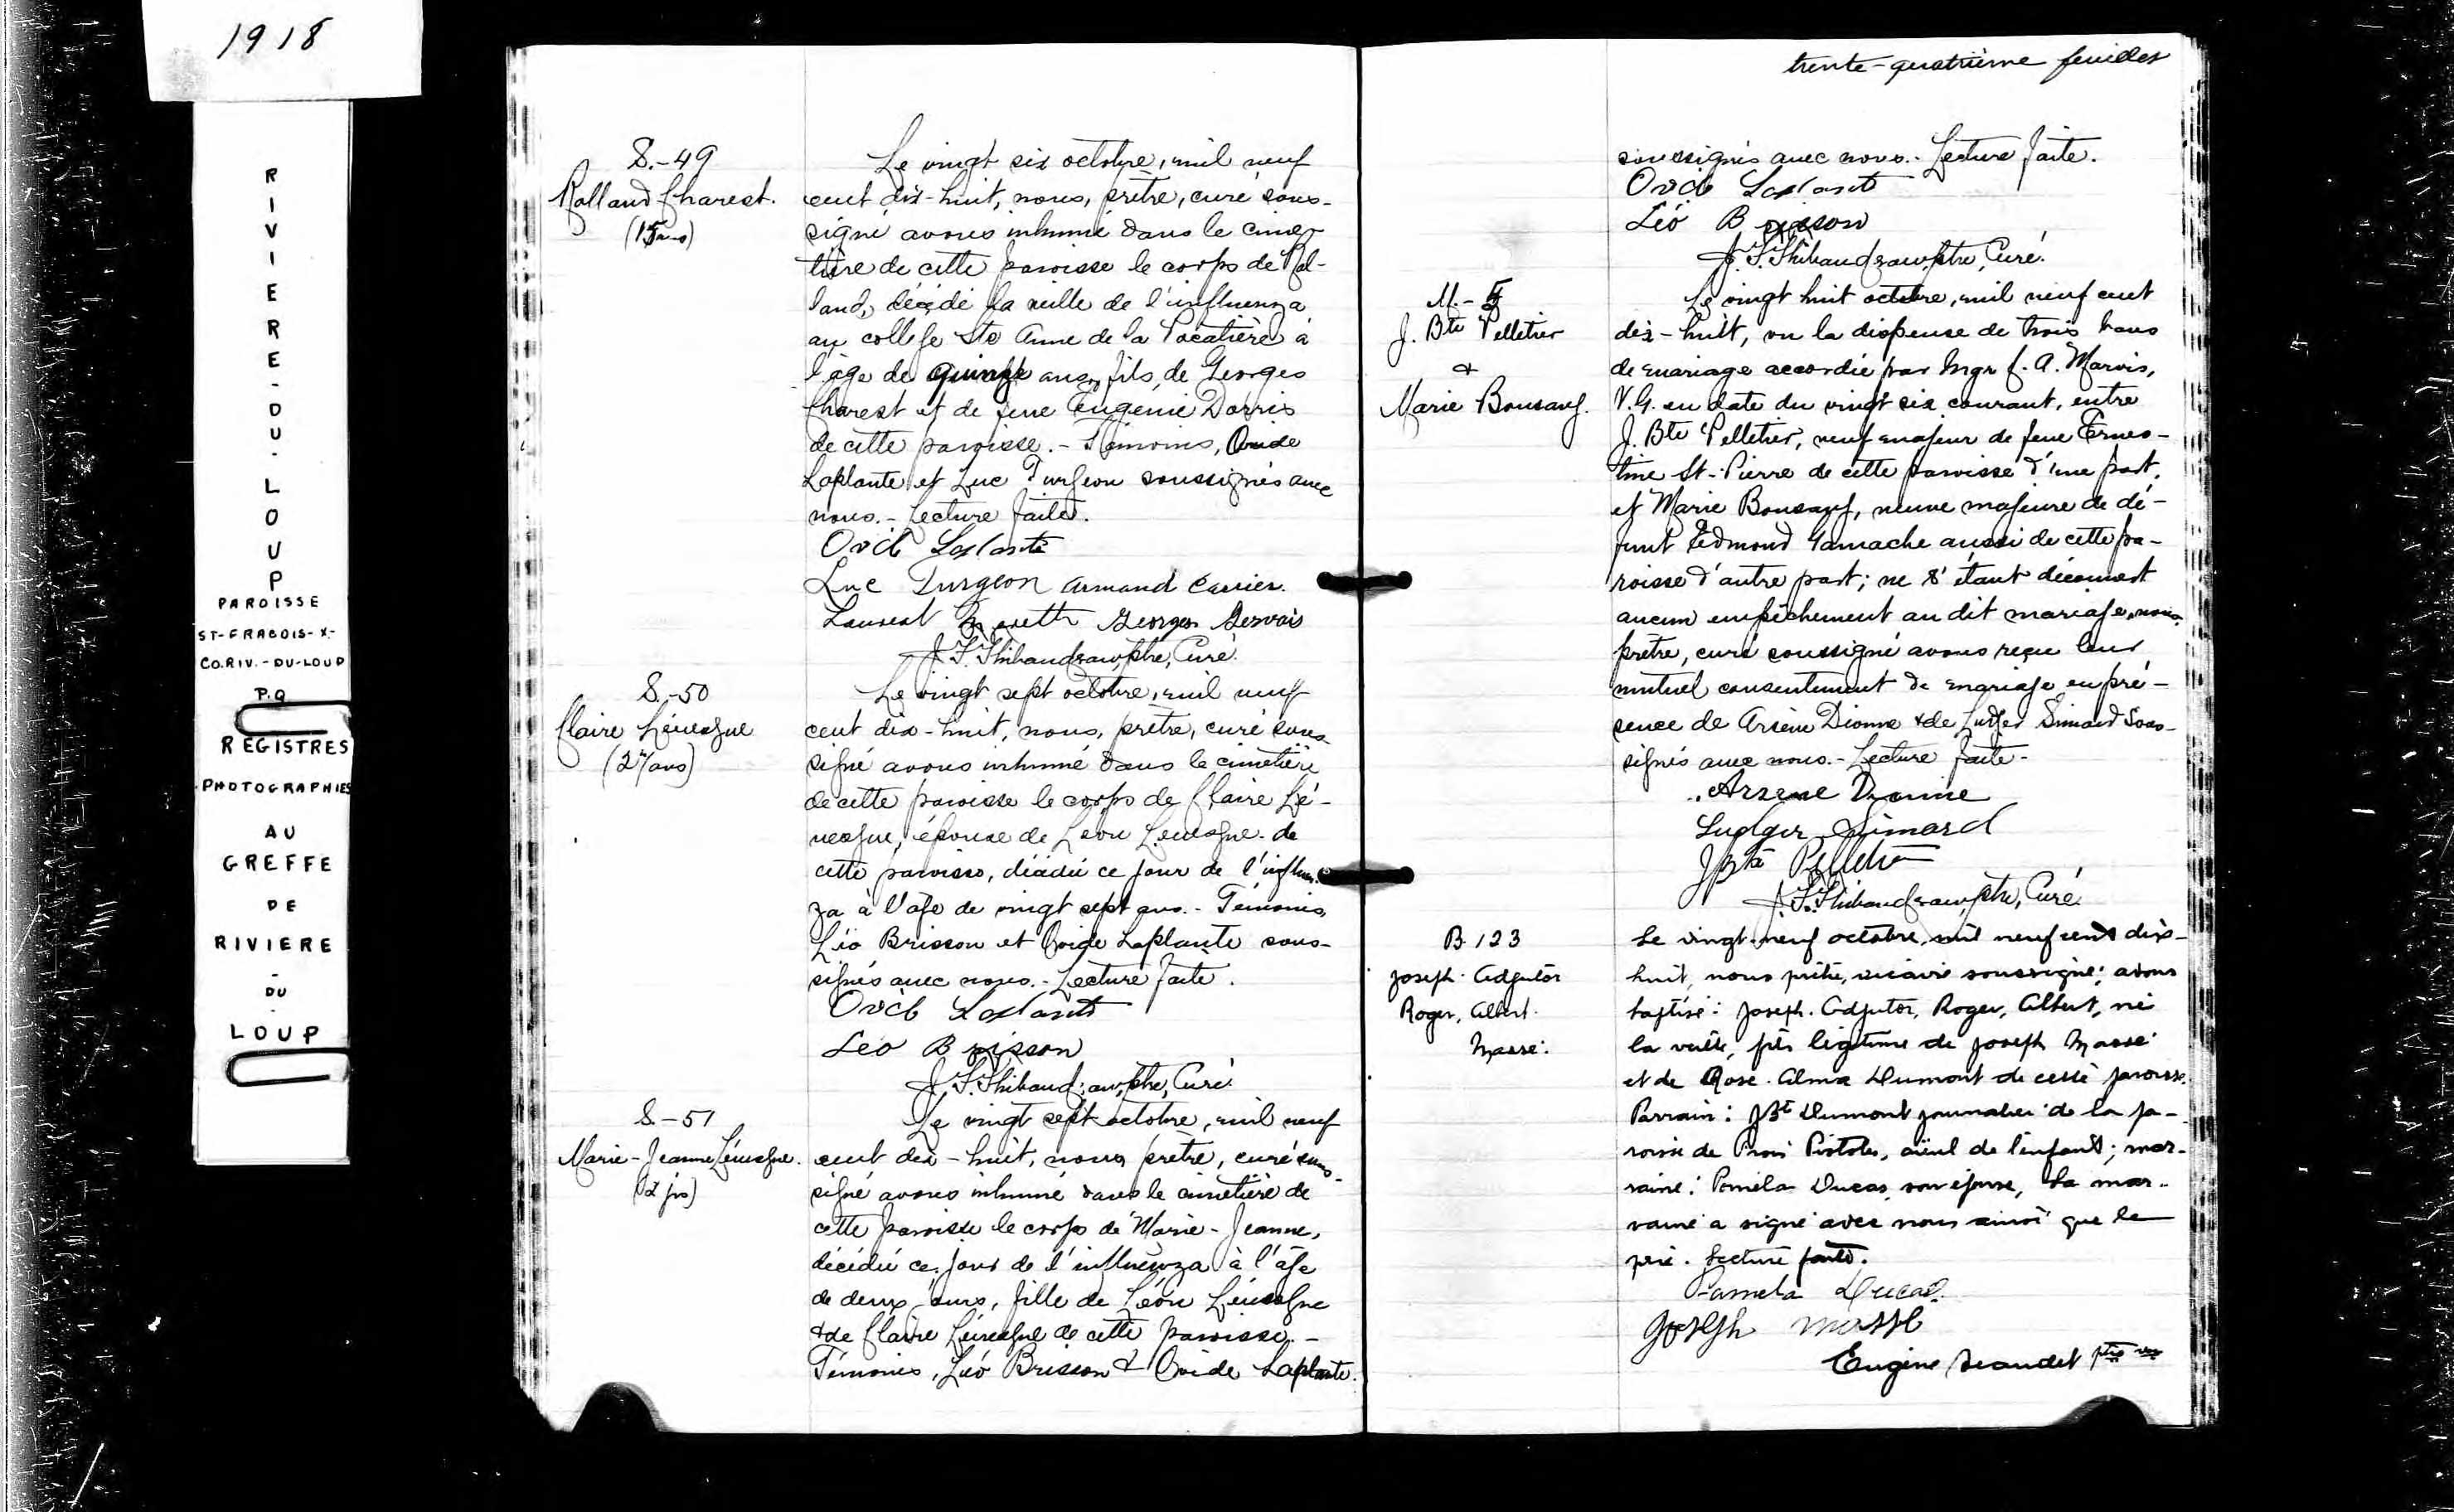 1918
RIVIERE-DU-LOUP
PAROISSE
ST-FRACOIS-X-
CO.RIV.-DU-LOUP
P.Q
REGISTRES
PHOTOGRAPHIES
AU
GREFFE
DE
RIVIERE
-
DU
-
LOUP
S.-49
Rolland Charest.
(15 ans)
Le vingt six octobre, mil neuf
cent dix-huit, nous, prêtre, curé sous-
signé avons inhumé dans le cime-
tière de cette paroisse le corps de Rol-
land, décédé la veille de l'influenza
au collège Ste Anne de la Pocatière à
l'âge de quinze ans, fils de Georges
Charest et de feue Eugénie Dorris
de cette paroisse.- Témoins, Ovide
Laplante et Luc Turgeon soussignés avec
nous.- Lecture faite.
Ovide Laplante
Luc Turgeon Armand Carrier.
Laurent Georges Gervais
J. S. Thibaudeau, ptre, Curé.
S.-50
Claire Lévesque
(27 ans)
Le vingt sept octobre, mil neuf
cent dix-huit, nous, prêtre, curé sous-
signé avons inhumé dans le cimetière
de cette paroisse le corps de Claire Lé-
vesque, épouse de Léon Lévesque de
cette paroisse, décédée ce jour de l'influen-
za à l'âge de vingt sept ans.- Témoins
Léo Brisson et Ovide Laplante sous-
signés avec nous.- Lecture faite.
Ovide Laplante
Léo Brisson
J. S. Thibaudeau, ptre, Curé
S.-51
Marie-Jeanne Lévesque.
(2 jrs)
Le vingt sept octobre, mil neuf
cent dix-huit, nous, prêtre, curé sous-
signé avons inhumé dans le cimetière de
cette paroisse le corps de Marie-Jeanne,
décédée ce jour de l'influenza à l'âge
de deux jours, fille de Léon Lévesque
& de Claire Lévesque de cette paroisse.-
Témoins, Léo Brisson & Ovide Laplante.
trente-quatrième feuillet
soussignés avec nous.- Lecture faite.
Ovide Laplante
Léo Brisson
J. S. Thibaudeau, ptre, Curé.
M.-5
J. Bte Pelletier
&
Marie Bonsang.
Le vingt huit octobre, mil neuf cent
dix-huit, vu la dispense de trois bans
de mariage accordée par Mgr C. A. Marois,
V.G. en date du vingt six courant, entre
J. Bte Pelletier, veuf majeur de feue Ernes-
tine St-Pierre de cette paroisse d'une part,
et Marie Bonsang, veuve majeure de dé-
funt Edmond Gamache aussi de cette pa-
roisse d'autre part; ne s'étant découvert
aucun empêchement au dit mariage, nous,
prêtre, curé soussigné avons reçu leur
mutuel consentement de mariage en pré-
sence de Arsène Dionne & de Ludger Simard sous-
signés avec nous.- Lecture faite-
Arsene Dionne
Ludger Simard
J Bte Pelletier
J. S. Thibaudeau, ptre, Curé
B 123
Joseph. Adjutor
Roger, Albert.
Massé.
Le vingt-neuf octobre, mil neuf cent dix-
huit, nous prêtre, vicaire soussigné, avons
baptisé: Joseph. Adjutor, Roger, Albert, né
la veille, fils légitime de Joseph Massé
et de Rose. Alma Dumont de cette paroisse.
Parrain: J Bte Dumont journalier de la pa-
roisse de Trois Pistoles, aïeul de l'enfant; mar-
raine: Paméla Ducas, son épouse, La mar-
raine a signé avec nous ainsi que le
père. Lecture faite.
Pamela Ducas.
Joseph Massé
Eugène Beaudet ptre vic